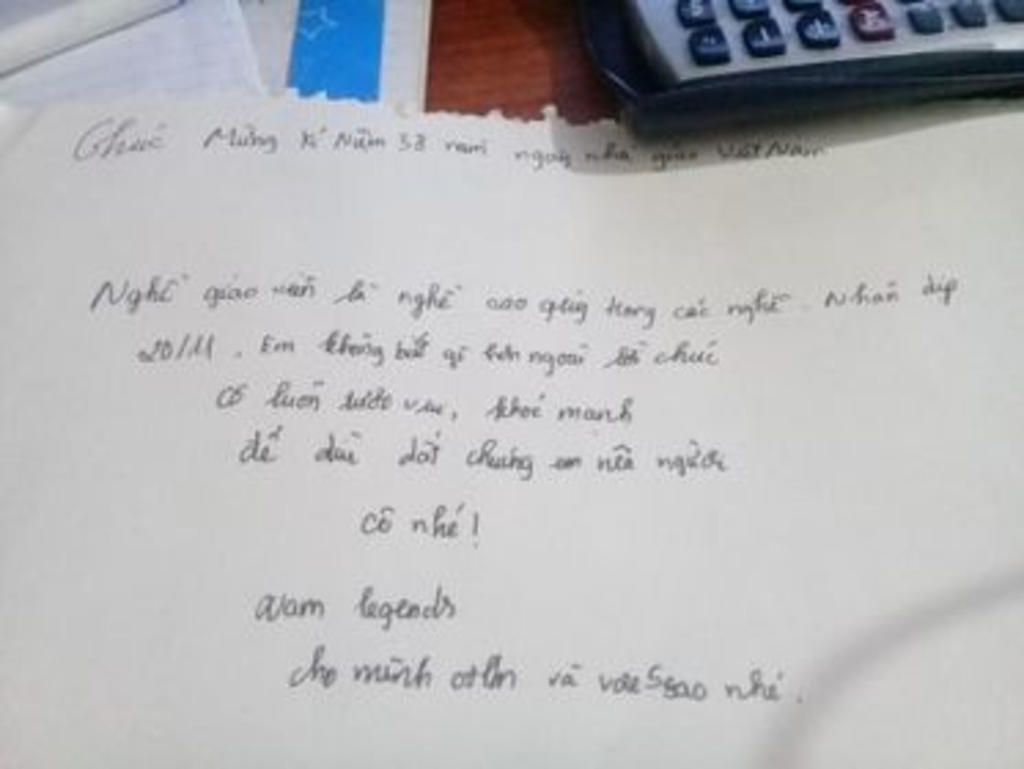 Chúc Mừng Kỉ Niệm 33 năm ngày nhà giáo Việt Nam
Nghề giáo viên là nghề cao quý trong các nghề. Nhân dịp
20/11. Em không biết gì hơn ngoài lời chúc
Cô luôn tươi vui, khoẻ mạnh
để dìu dắt chúng em nên người
cô nhé!
Nam legends
cho mình và vote 5 sao nhé.